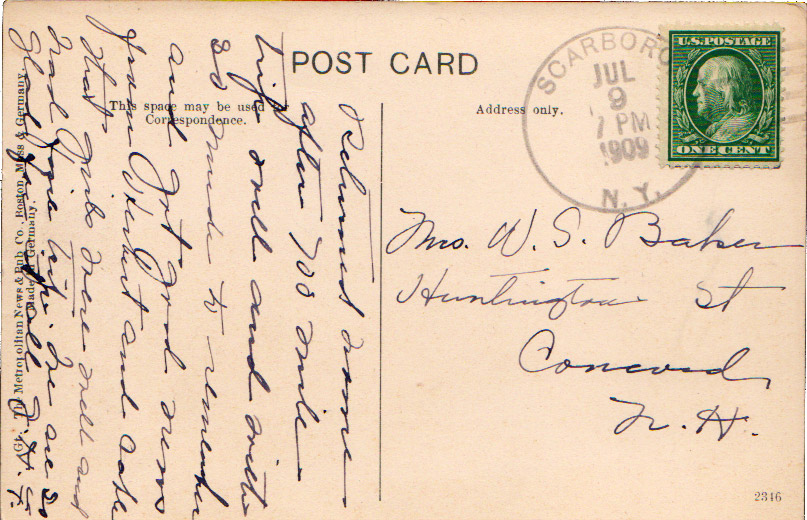 POST CARD
This space may be used for
Correspondence.
Address only.
SCARBORO
JUL
9
7 PM
1909
N.Y.
U.S. POSTAGE
ONE CENT
Mrs. W. S. Baker
Huntington St
Concord,
N. H.
Returned home
after 700 mile
trip well and with
so much to remember
and Art. And news
from Herbert and
that were well and
Glad you are all
The Metropolitan News & Pub. Co., Boston, Mass & Germany.
Made in Germany.
2346